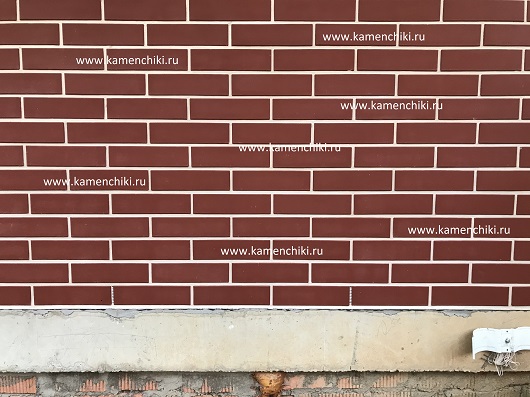 www.kamenchiki.ru
www.kamenchiki.ru
www.kamenchiki.ru
www.kamenchiki.ru
www.kamenchiki.ru
www.kamenchiki.ru
www.kamenchiki.ru